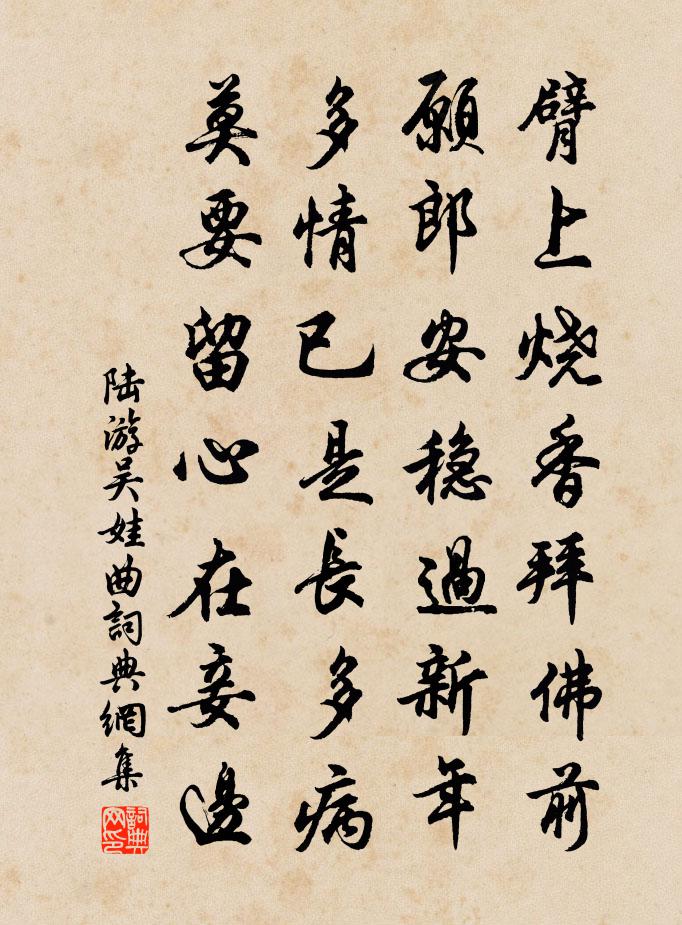 臂上烧香拜佛前
願郎安穏過新年
多情已是長多病
莫要留心在妾邊
陆游吴娃曲詞典網集
詞典网印